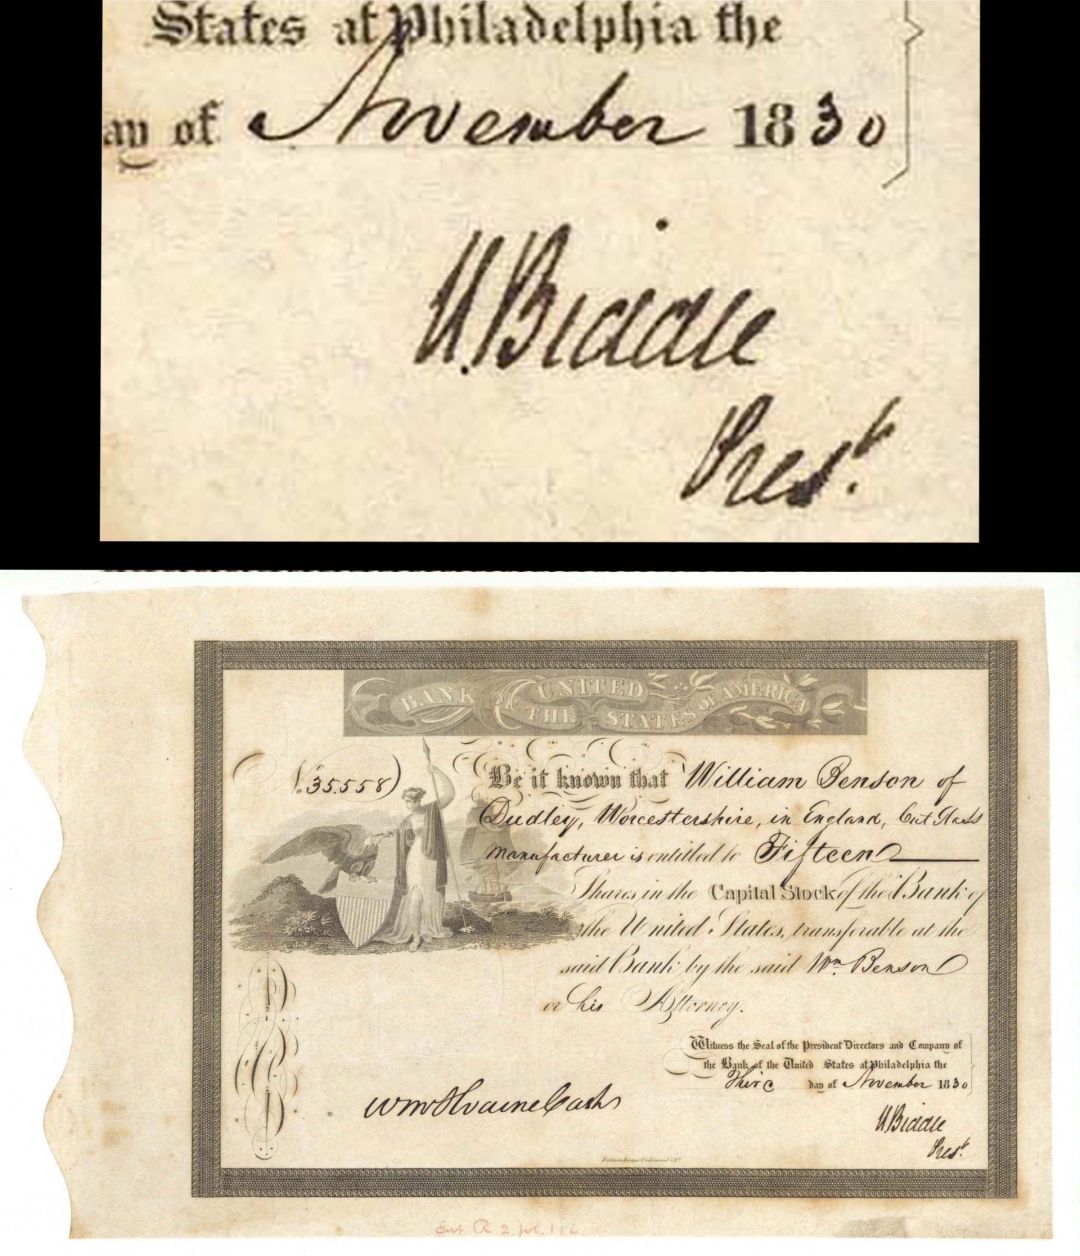 States at Philadelphia the
ay of November 1830
N. Biddle
Prest.
BANK OF THE UNITED STATES OF AMERICA
No. 35.558
Be it known that William Benson of
Dudley, Worcestershire, in England, Cut Glass
Manufacturer is entitled to Fifteen
Shares in the Capital Stock of the Bank of
the United States, transferable at the
said Bank by the said Wm. Benson
or his Attorney.
Witness the Seal of the President Directors and Company of
the Bank of the United States at Philadelphia the
day of November 1830
Wm McIlvaine Cashr
N. Biddle
Prest.